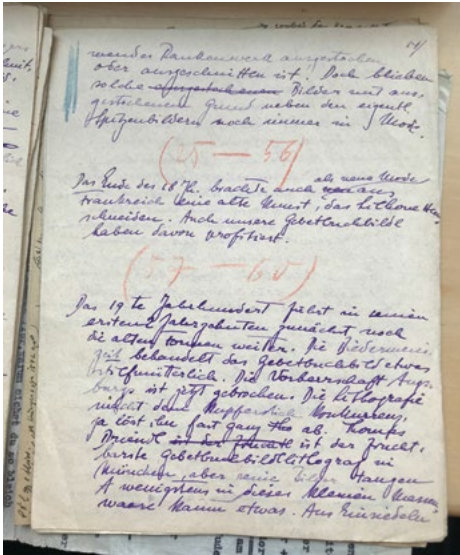 51
wendes Rankenwerk ausgestochen
oder ausgeschnitten ist. Doch blieben
solche ausgestochenen Bilder mit aus-
gestochenem Grund neben den eigentl.
Spitzenbildern noch immer in Mode.
(25 — 56)
als neue Mode
Das Ende des 18 Jh. brachte auch aus
Frankreich eine alte Kunst, das Silhouetten-
schneiden. Auch unsere Gebetbuchbildl
haben davon profitiert.
(57 — 60)
Das 19 te Jahrhundert führt in seinen
ersten Jahrzehnten zunächst noch
die alten Formen weiter. Die Biedermeier-
zeit behandelt das Gebetbuchbild etwas
stiefmütterlich. Die Vorherrschaft Augs-
burgs ist jetzt gebrochen. Die Lithografie
macht dem Kupferstich Konkurrenz,
ja löst ihn fast ganz ab. Thomas
Driendl in der ist der frucht-
barste Gebetbuchbildlithograf in
München, aber seine Bilder taugen
wenigstens in dieser kleinen Massen-
waare kaum etwas. Aus Einsiedeln